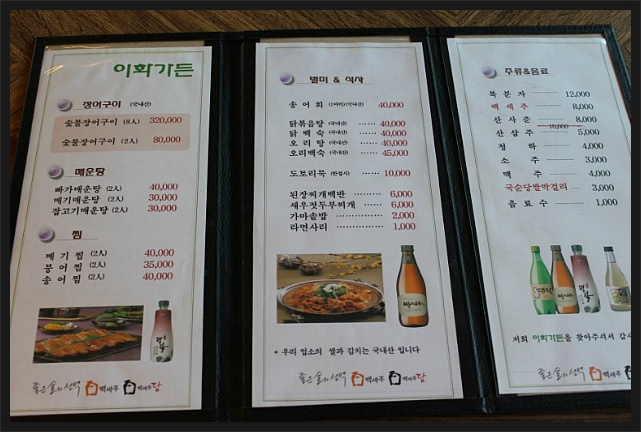 이화가든
장어구이 (국내산)
숯불장어구이 (8人) 320,000
숯불장어구이 (2人) 80,000
매운탕
빠가매운탕 (2人) 40,000
메기매운탕 (2人) 30,000
잡고기매운탕 (2人) 30,000
찜
메기찜 (2人) 40,000
붕어찜 (2人) 35,000
송어찜 (2人) 40,000
좋은술의선택 백세주 백세주담
별미 & 식사
송어회 (1마리)(국내산) 40,000
닭볶음탕 (국내산) ...... 40,000
닭백숙 (국내산) ...... 40,000
오리탕 (국내산) ...... 40,000
오리백숙 (국내산) ...... 45,000
도토리묵 ...... 10,000
된장찌개백반 ............ 6,000
새우젓두부찌개 ...... 6,000
가마솥밥 ............ 2,000
라면사리 ............ 1,000
* 우리 업소의 쌀과 김치는 국내산 입니다
좋은술의선택 백세주 백세주담
주류&음료
복분자 ........ 12,000
백세주 ........ 8,000
산사춘 ........ 8,000
10,000
산삼주 ........ 5,000
청하 ........ 4,000
소주 ........ 3,000
맥주 ........ 4,000
국순당쌀막걸리 .... 3,000
음료수 ........ 1,000
저희 이화가든을 찾아주셔서 감사
좋은술의선택 백세주